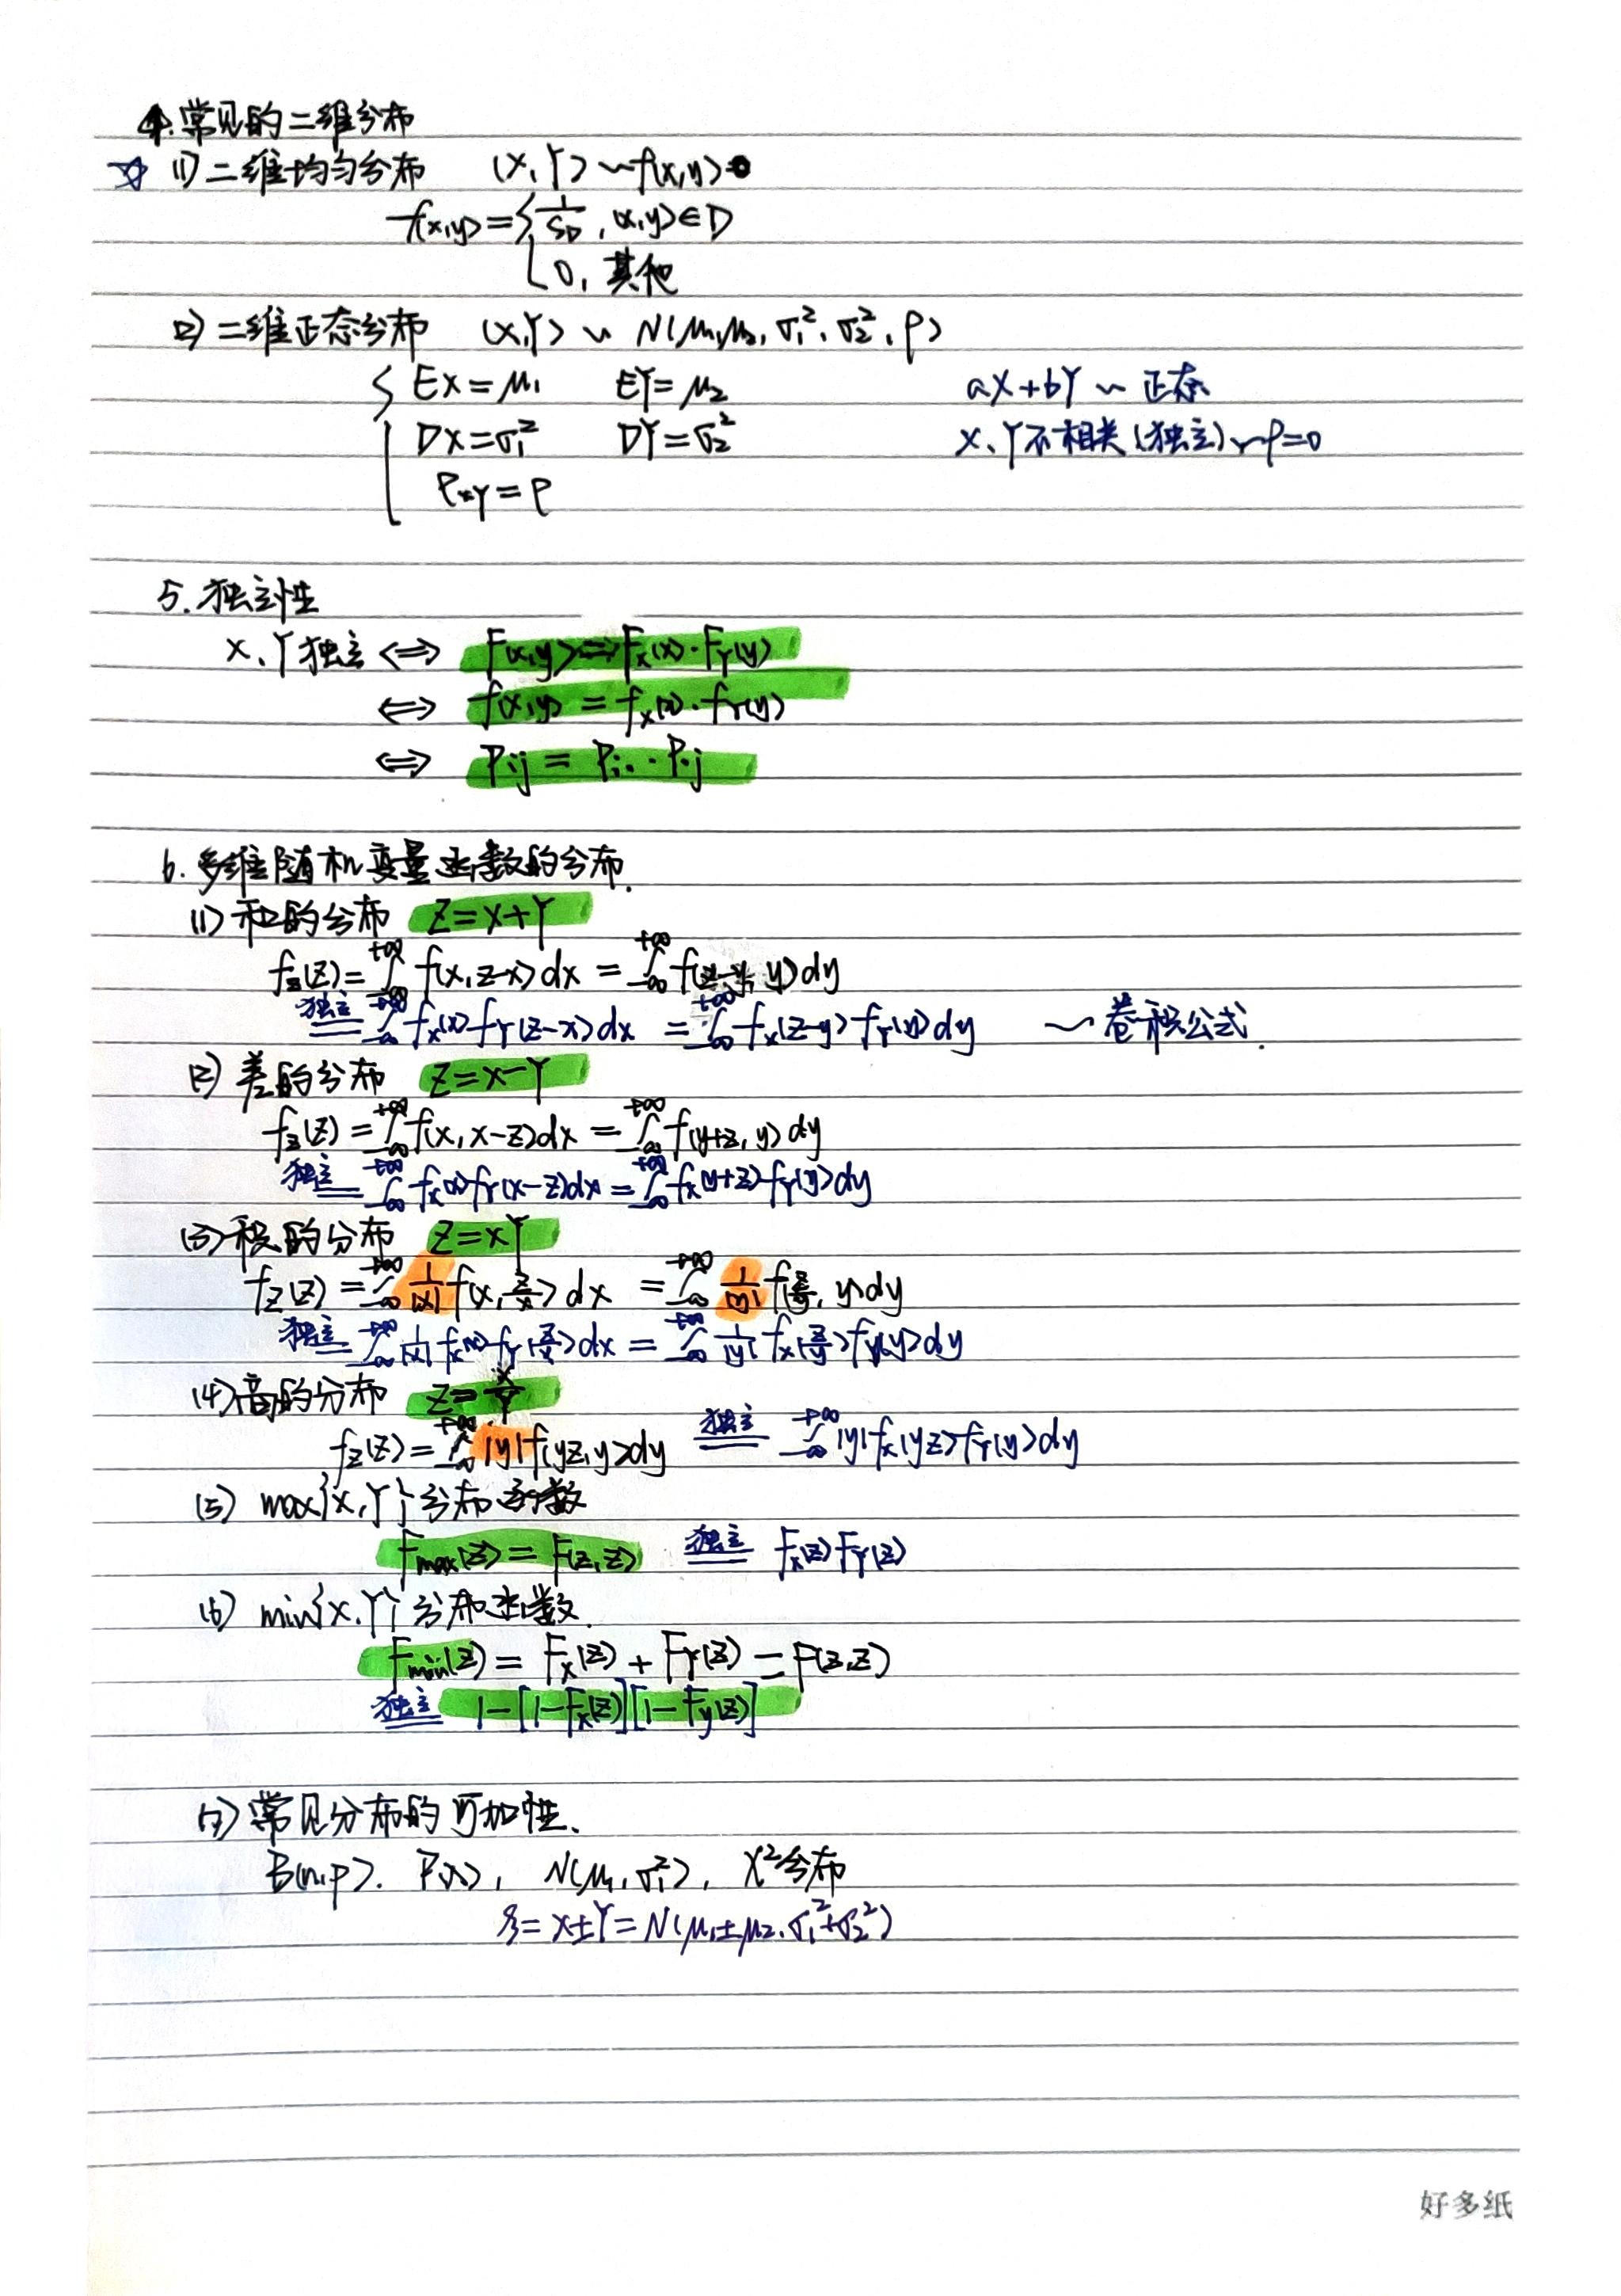 4. 常见的二维分布
☆ (1) 二维均匀分布 (X,Y)~f(x,y)
f(x,y)={1/S_D, (x,y)∈D
0, 其他
(2) 二维正态分布 (X,Y) ~ N(μ₁,μ₂,σ₁²,σ₂²,ρ)
{ EX=μ₁ EY=μ₂ aX+bY ~ 正态
DX=σ₁² DY=σ₂² X、Y不相关(独立)~ρ=0
ρ_XY=ρ
5. 独立性
X、Y独立 ⇔ F(x,y)=F_X(x)·F_Y(y)
⇔ f(x,y)=f_X(x)·f_Y(y)
⇔ P_ij = P_i. · P.j
6. 多维随机变量函数的分布.
(1) 和的分布 Z=X+Y
f_Z(z)=∫_{-∞}^{+∞} f(x,z-x)dx = ∫_{-∞}^{+∞} f(z-y,y)dy
独立= ∫_{-∞}^{+∞} f_X(x)f_Y(z-x)dx = ∫_{-∞}^{+∞} f_X(z-y)f_Y(y)dy ~卷积公式.
(2) 差的分布 Z=X-Y
f_Z(z)=∫_{-∞}^{+∞} f(x,x-z)dx = ∫_{-∞}^{+∞} f(y+z,y)dy
独立= ∫_{-∞}^{+∞} f_X(x)f_Y(x-z)dx = ∫_{-∞}^{+∞} f_X(y+z)f_Y(y)dy
(3) 积的分布 Z=XY
f_Z(z)=∫_{-∞}^{+∞} 1/|x| f(x,z/x)dx = ∫_{-∞}^{+∞} 1/|y| f(z/y,y)dy
独立= ∫_{-∞}^{+∞} 1/|x| f_X(x)f_Y(z/x)dx = ∫_{-∞}^{+∞} 1/|y| f_X(z/y)f_Y(y)dy
(4) 商的分布 Z=X/Y
f_Z(z)=∫_{-∞}^{+∞} |y|f(yz,y)dy 独立= ∫_{-∞}^{+∞} |y|f_X(yz)f_Y(y)dy
(5) max{X,Y}分布函数
F_max(z)=F(z,z) 独立= F_X(z)F_Y(z)
(6) min{X,Y}分布函数.
F_min(z)= F_X(z)+F_Y(z)-F(z,z)
独立= 1-[1-F_X(z)][1-F_Y(z)]
(7) 常见分布的可加性、
B(n,p). P(λ), N(μ₁,σ₁²), X²分布
Z=X±Y=N(μ₁±μ₂,σ₁²+σ₂²)
好多纸